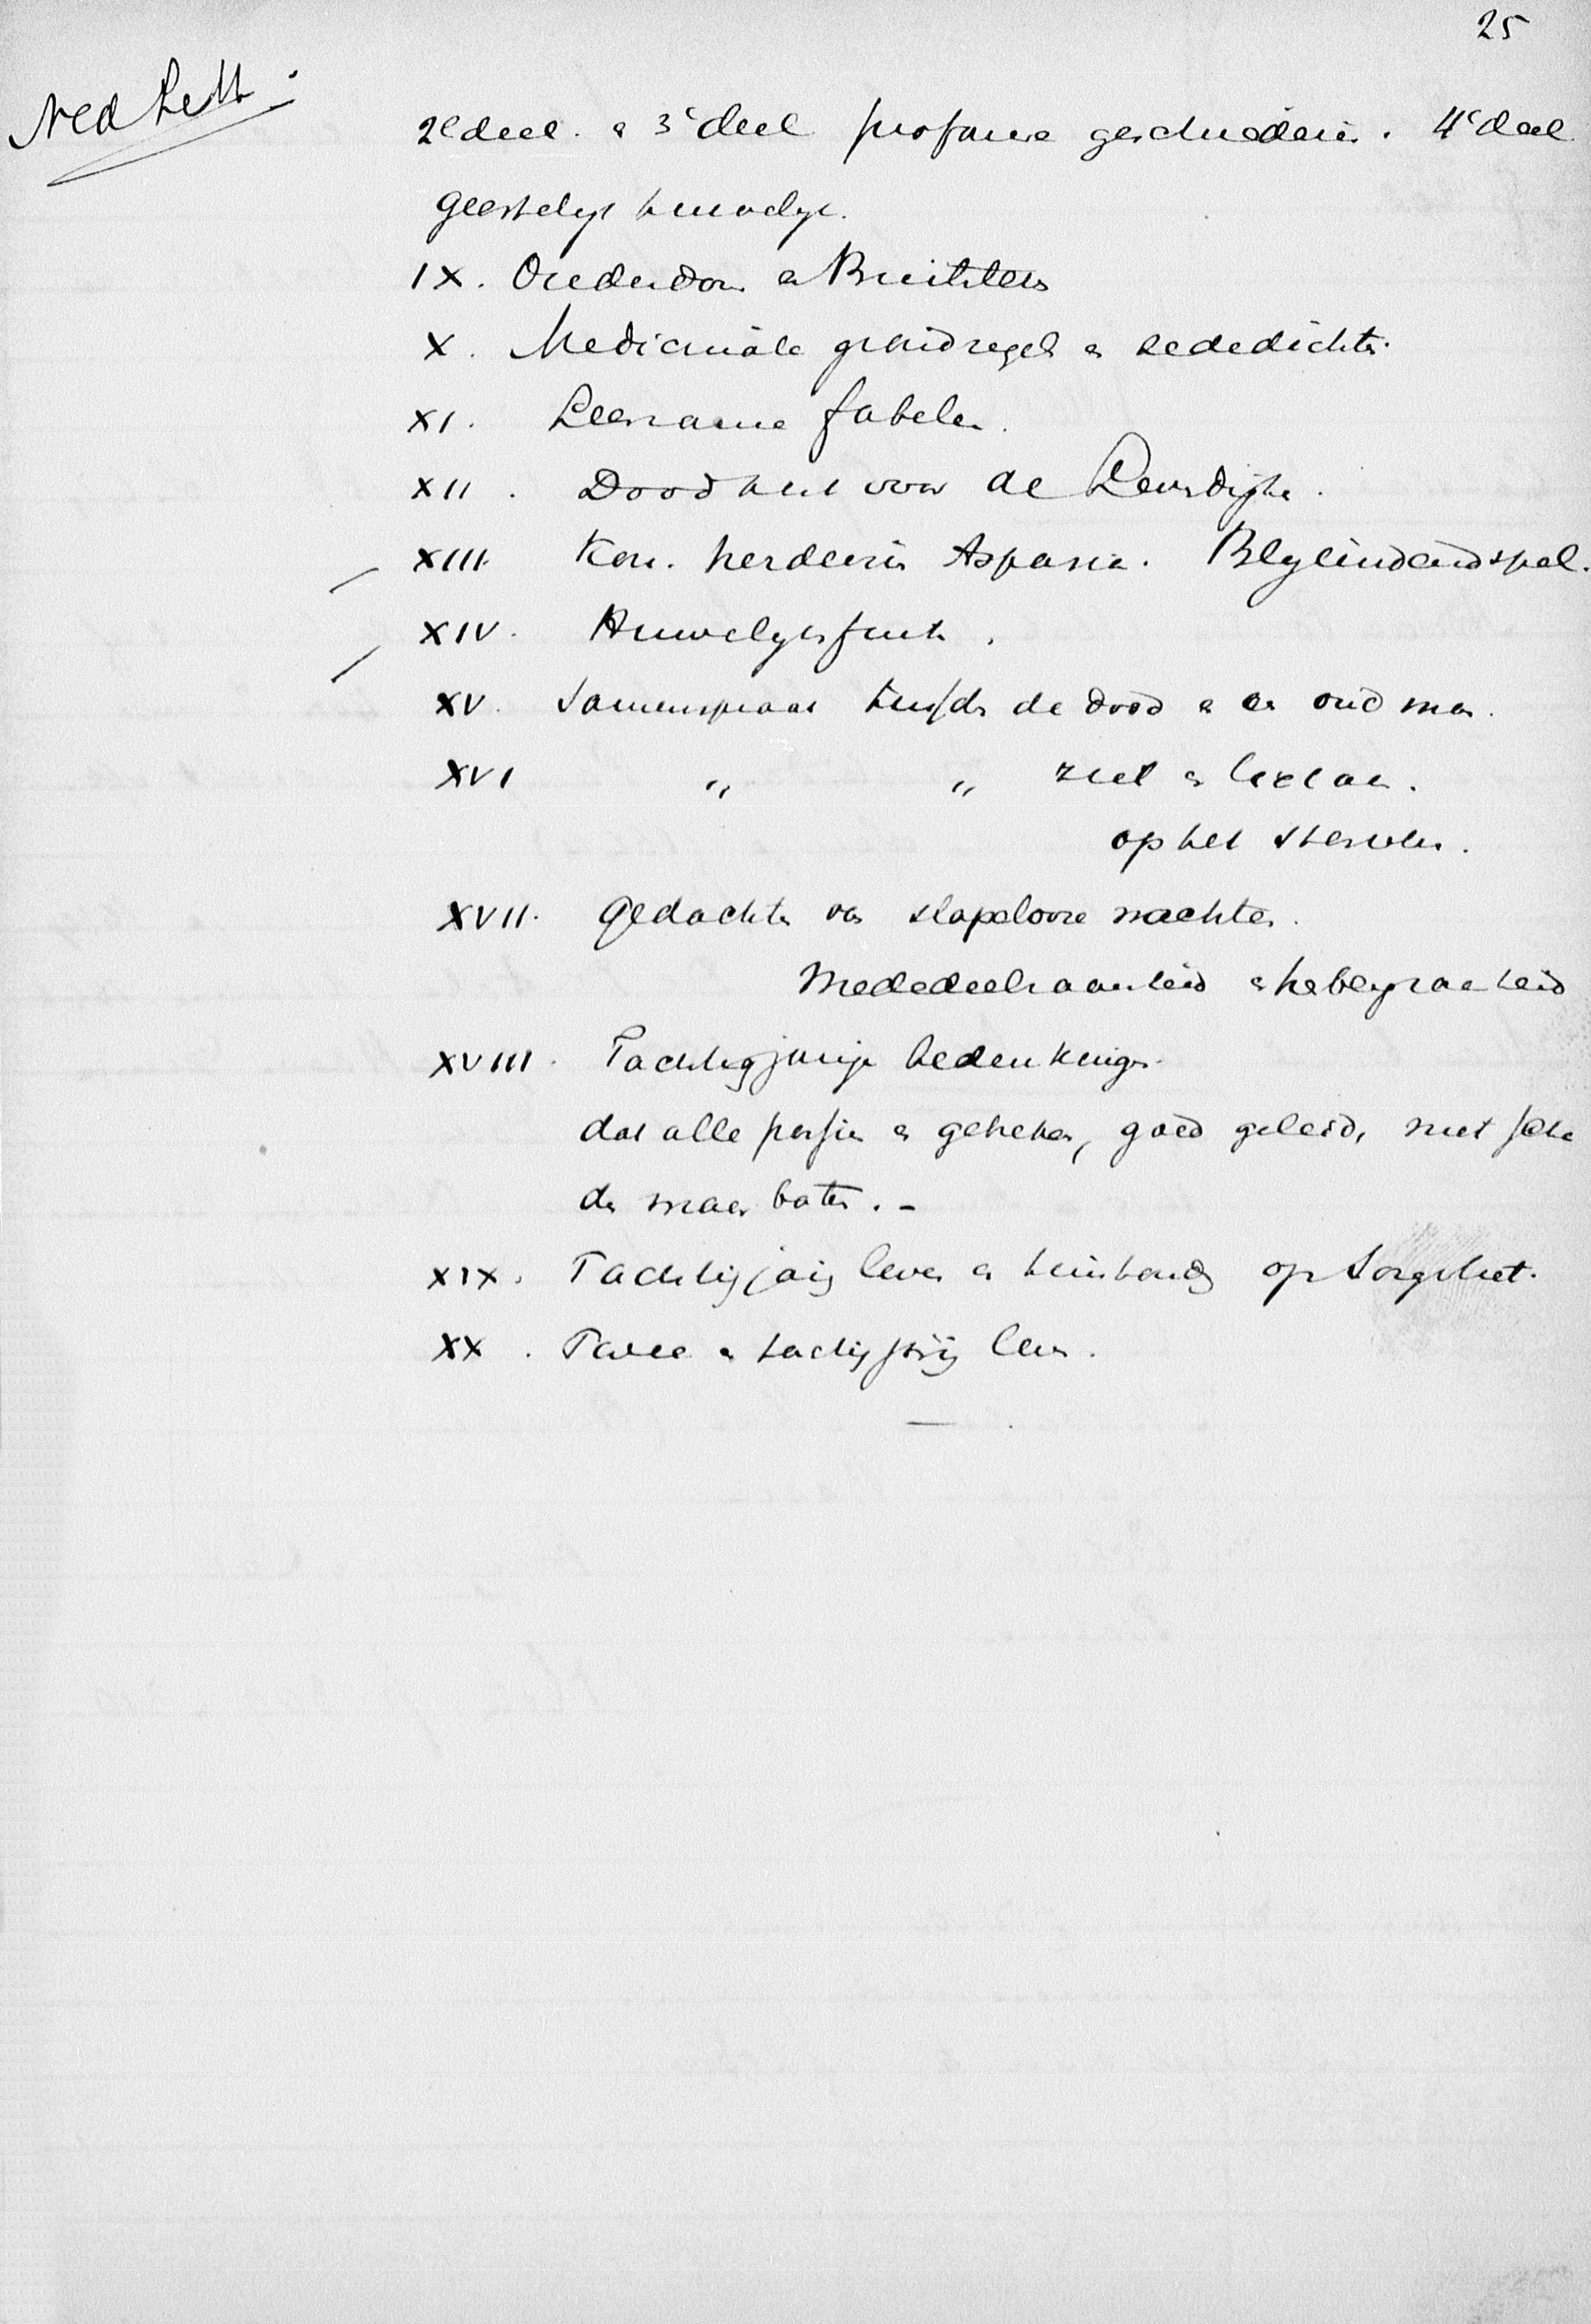 25
Ned Lett.
2e deel. & 3e deel profane geschiedenis. 4e deel
geestelyk huwelyk.
IX. Ouderdom en Buitenleven
X. Medicinale gesondregels en rededichten.
XI. Leersame fabelen.
XII. Doodkist voor de Levendighe.
XIII. Kon. herderin Aspasia. Blyeindendspel.
XIV. Huwelyksfuik.
XV. Samenspraak tusschen de dood en een oud man.
XVI " " ziel en lichaam.
op het sterven.
XVII. Gedachten van slapeloose nachten.
Mededeelsaamheid & hebbeyraeheid
XVIII. Tachtigjarige bedenkingen.
dat alle passien en gebreken, goed geleid, niet scha
den maer baten. -
XIX. Tachtigjarig leven en huishouding op Sorgvliet.
XX. Twee en tachtigjarig leven.